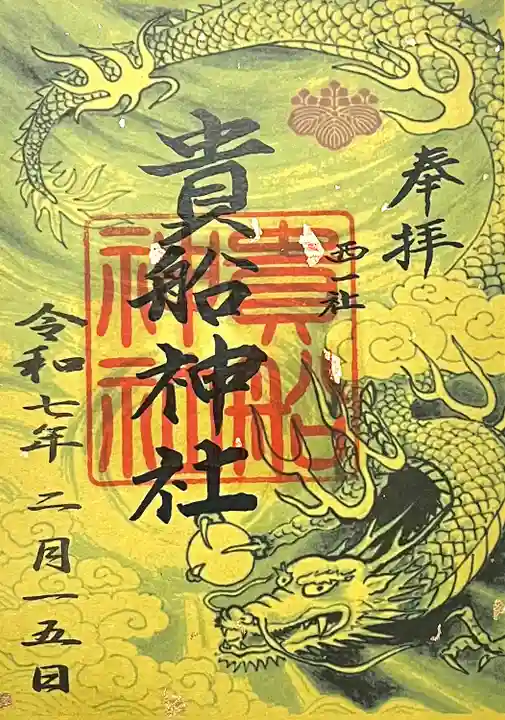 奉拝
西一社
貴船神社
貴船
神社
令和七年二月一五日